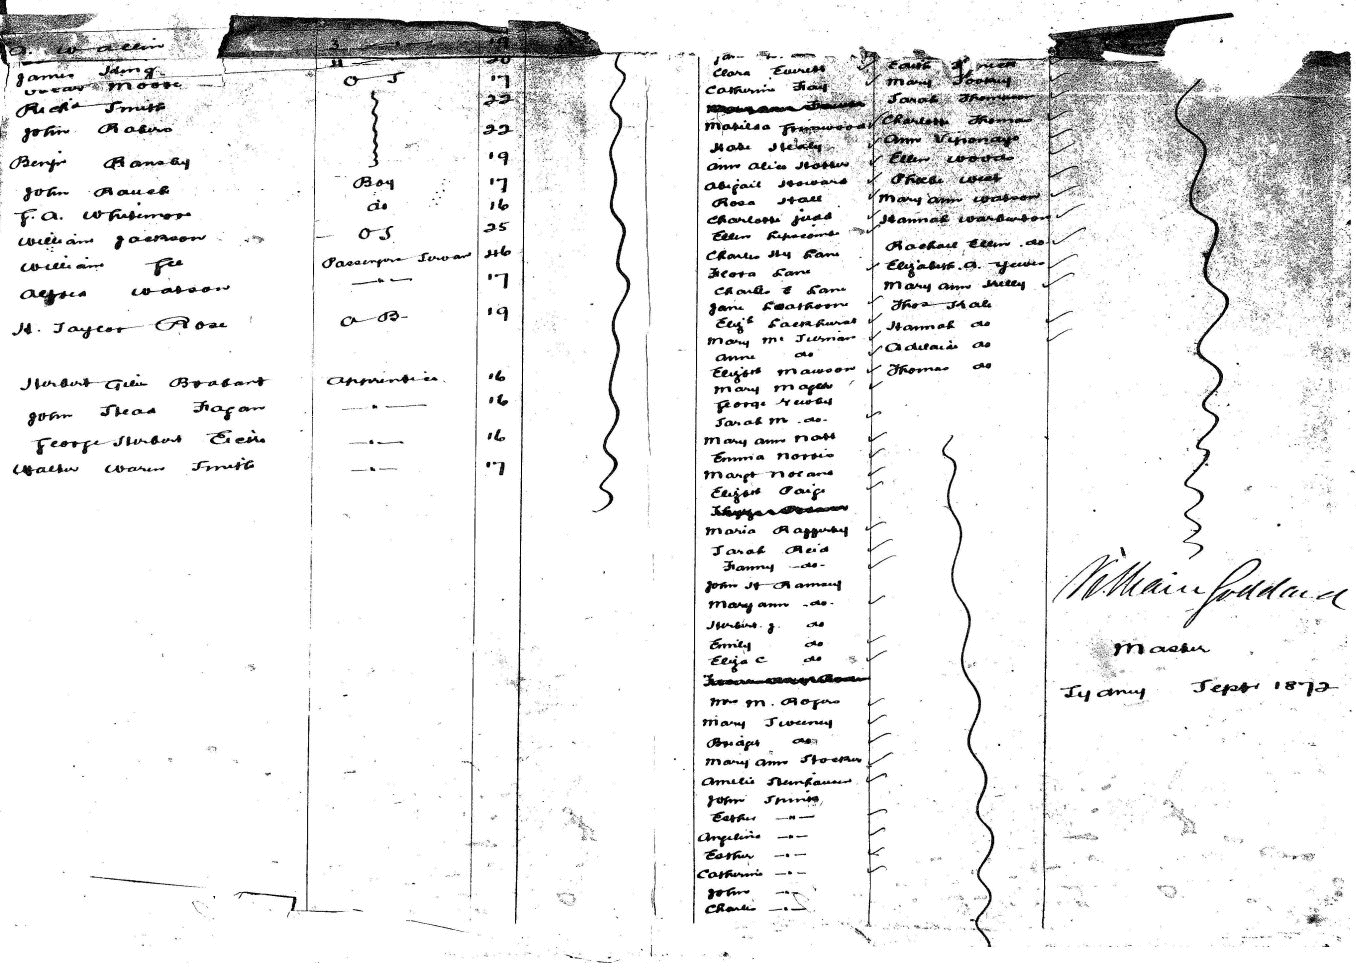 G. Wallin 3 19
James King 4 20
Oscar Moore O S 17
Richd Smith 22
John Rabers 22
Benjn Ransby 19
John Rauch Boy 17
F. A. Whitmore do 16
William Jackson O S 25
William Gee Passengers Servan 46
Alfred Watson —"— 17
H. Taylor Rose O B 19
Herbert Giles Brabant Apprentice 16
John Stead Fagan —"— 16
George Herbert —"— 16
Walter Waren Smith —"— 17
Clara Everett
Catherine Fay
Matilda Greenwood
Kate Healy
Ann Alice Hotter
Abigail Howard
Rosa Hall
Charlotte Judd
Ellen Lipscombe
Charles Hy Lane
Flora Lane
Charles E Lane
Jane Leathorne
Elizh Lackhurst
Mary Mc Tiernan
Anne do
Elizbt Mawson
Mary Mager
George Newby
Sarah M. do.
Mary Ann Natt
Emma Norris
Margt Nolans
Elizbt Paige
Maria Rafferty
Sarah Reid
Fanny —do—
John H Ramsey
Mary Ann do.
Herbert J. do
Emily do
Eliza C do
Mrs M. Rogers
Mary Sweeney
Bridget do
Mary Ann Stocker
Amelia Steinhauser
John Smith
Esther —"—
Angelina —"—
Esther —"—
Catherine —"—
John —"—
Charles —"—
Edith
Mary Toomey
Sarah Thompson
Charlotte Thomas
Ann
Ellen Woods
Phoebe West
Mary Ann Watson
Hannah Warburton
Rachael Ellen do
Elizabeth A. Yewes
Mary Ann Kelly
Thos Hale
Hannah do
Adelaide do
Thomas do
William Goddard
Master
Sydney Sept 1872